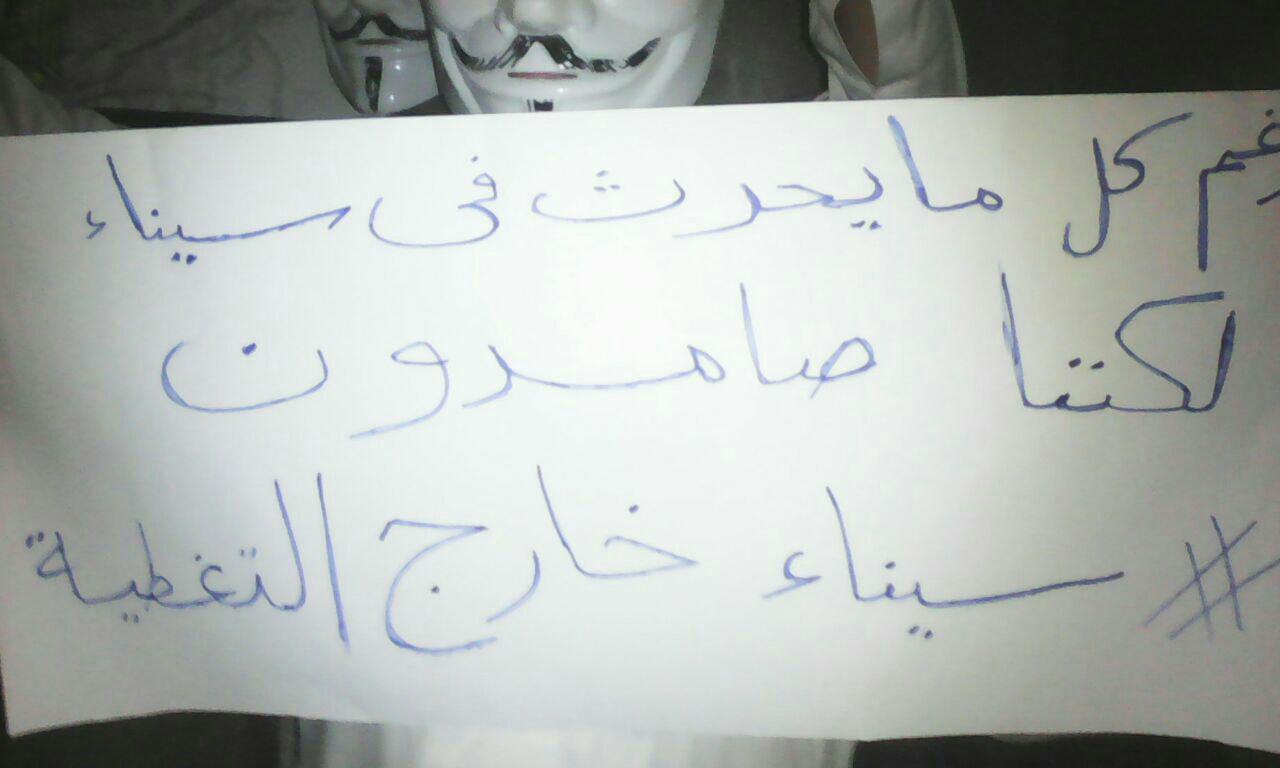 رغم كل ما يحدث فى سيناء
لكننا صامدون
# سيناء خارج التغطية